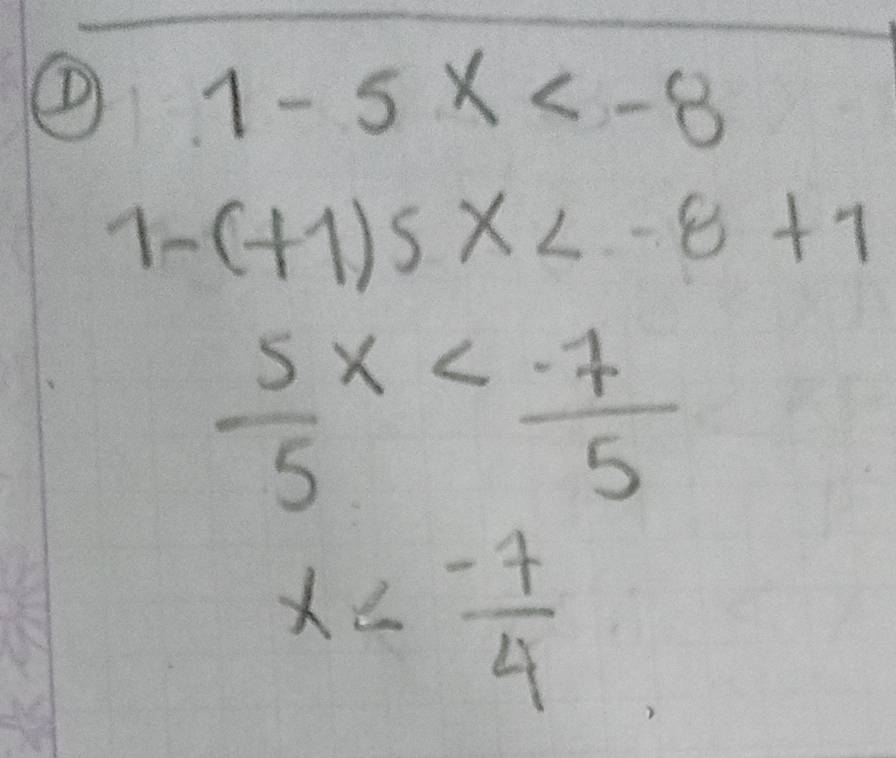 Ⓓ 1 - 5x < -8
1-(+1)5x < -8 + 1
5x/5 < -7/5
x < -7/4